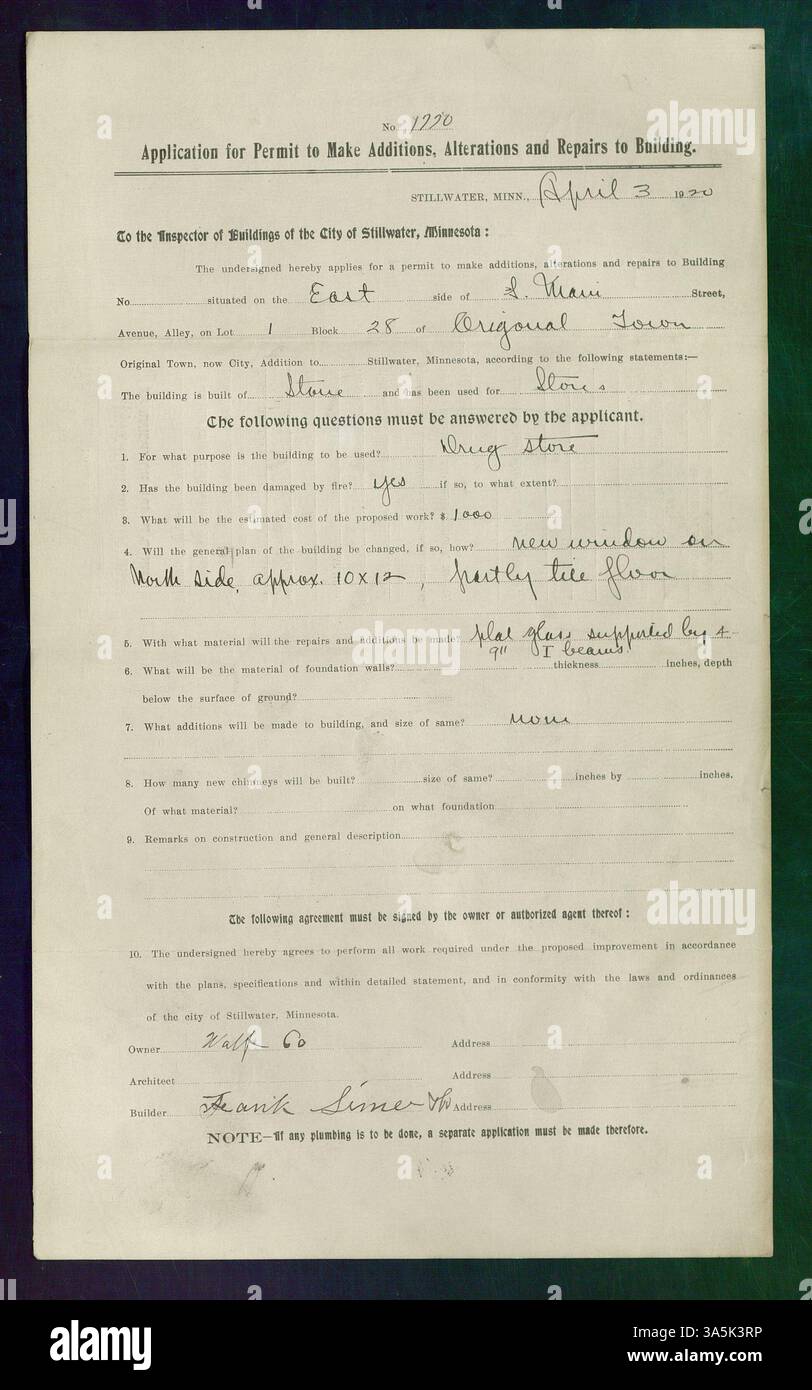 No. 1770
Application for Permit to Make Additions, Alterations and Repairs to Building.
STILLWATER, MINN., April 3 1920
To the Inspector of Buildings of the City of Stillwater, Minnesota:
The undersigned hereby applies for a permit to make additions, alterations and repairs to Building
No. situated on the East side of S. Main Street,
Avenue, Alley, on Lot 1 Block 28 of Origonal Town
Original Town, now City, Addition to Stillwater, Minnesota, according to the following statements:—
The building is built of Stone and has been used for Stores
The following questions must be answered by the applicant.
1. For what purpose is the building to be used? Drug store
2. Has the building been damaged by fire? yes if so, to what extent?
3. What will be the estimated cost of the proposed work? $ 1000
4. Will the general plan of the building be changed, if so, how? new window on
North side, approx. 10 x 12, partly tile floor
5. With what material will the repairs and additions be made? plat glass supported by 4-
9" I beams
6. What will be the material of foundation walls? thickness inches, depth
below the surface of ground?
7. What additions will be made to building, and size of same? none
8. How many new chimneys will be built? size of same? inches by inches.
Of what material? on what foundation
9. Remarks on construction and general description
The following agreement must be signed by the owner or authorized agent thereof:
10. The undersigned hereby agrees to perform all work required under the proposed improvement in accordance
with the plans, specifications and within detailed statement, and in conformity with the laws and ordinances
of the city of Stillwater, Minnesota.
Owner Wolf Co Address
Architect Address
Builder Frank Address
NOTE—If any plumbing is to be done, a separate application must be made therefore.
alamy
a
alamy
Image ID: A5K3RP
www.alamy.com